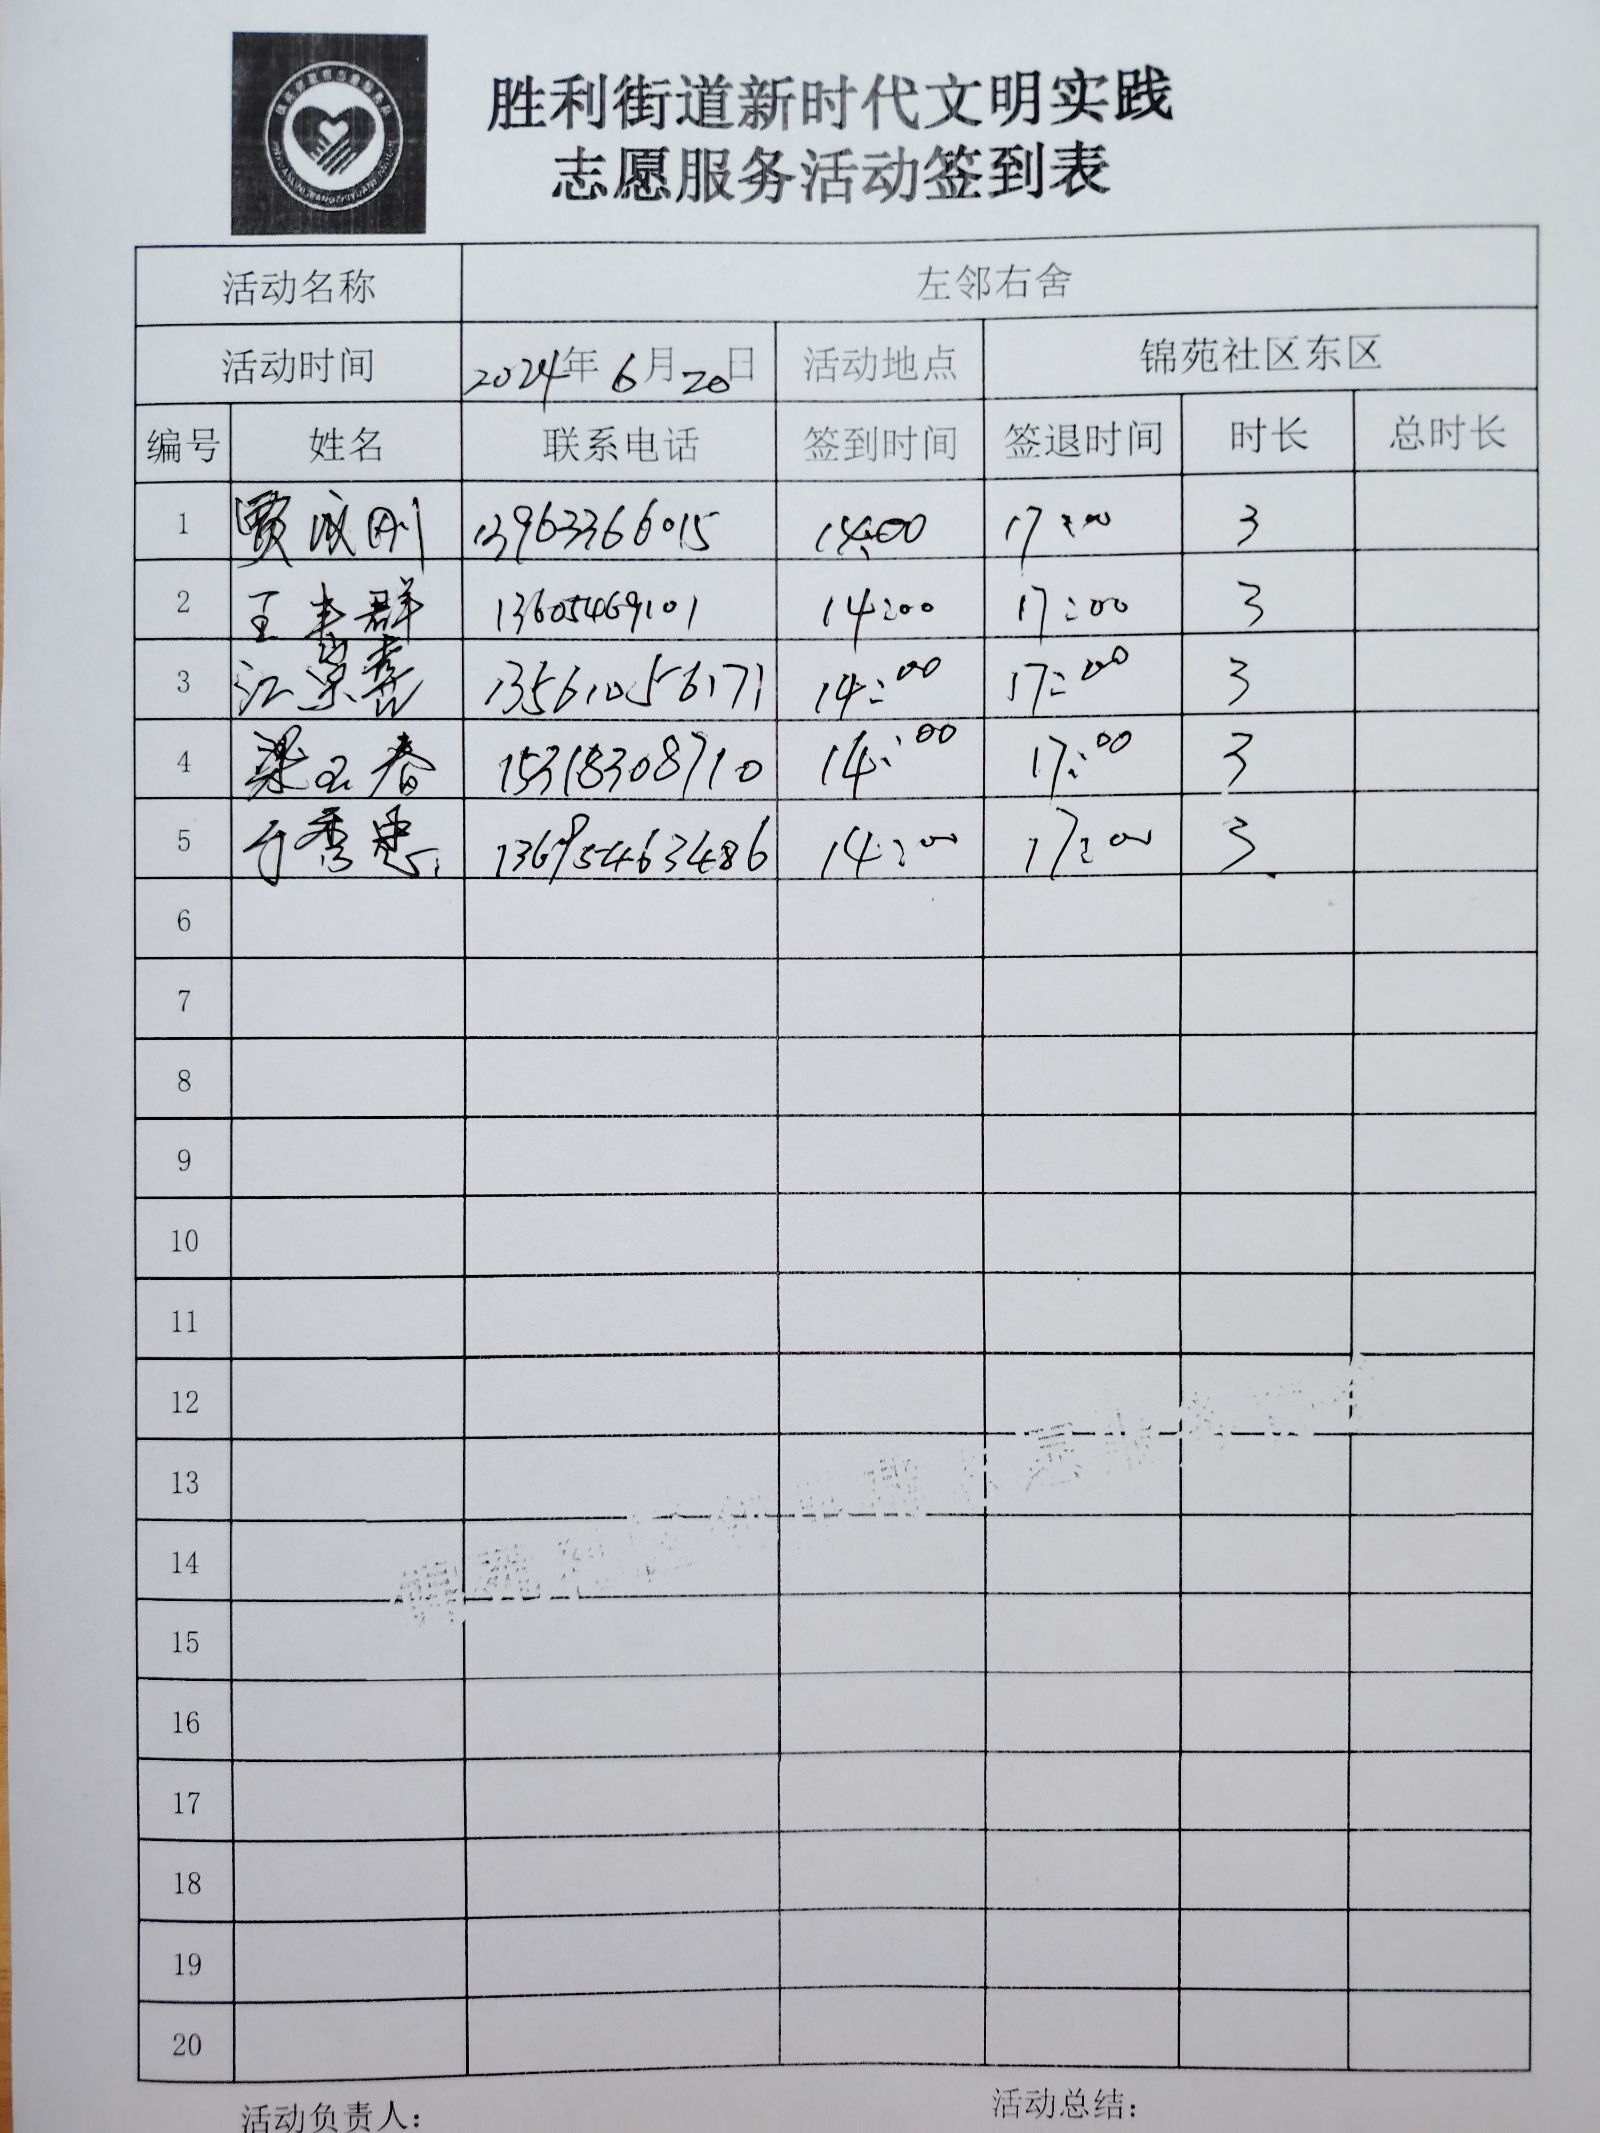 胜利街道新时代文明实践
志愿服务活动签到表
活动名称 左邻右舍
活动时间 2024年6月20日 活动地点 锦苑社区东区
编号 姓名 联系电话 签到时间 签退时间 时长 总时长
1 贾成刚 13963366015 14:00 17:00 3
2 王丰群 13605469101 14:00 17:00 3
3 江宗喜 13561056171 14:00 17:00 3
4 梁玉春 15318308710 14:00 17:00 3
5 于秀忠 14:00 17:00 3
6
7
8
9
10
11
12
13
14
15
16
17
18
19
20
活动负责人： 活动总结：